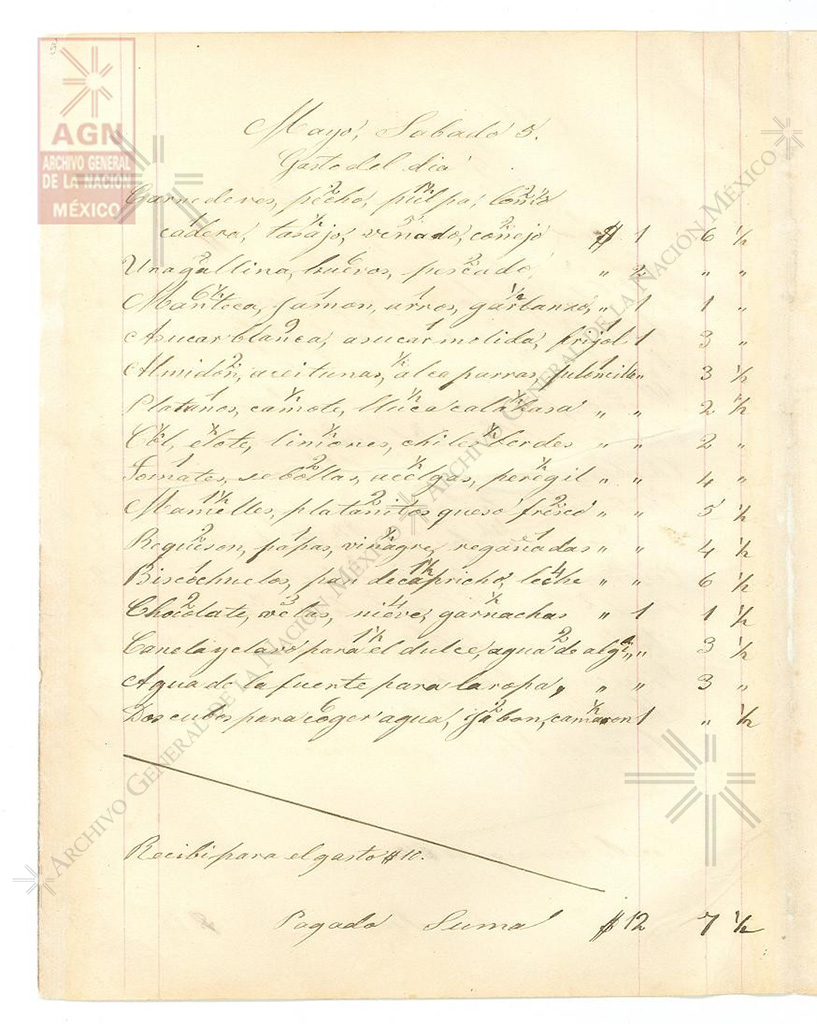 AGN
ARCHIVO GENERAL
DE LA NACIÓN
MÉXICO
Mayo, Sabado 5.
Gasto del dia
Carnederes, pecho, pulpa, lomo
cadera, tasajo, venado, conejo $ 1 6 ½
Una gallina, huevos, pescado, " 2 " "
Manteca, jamon, arros, garbanzo, " 1 1 "
Asucar blanca, asucar molida, frijol " 1 3 "
Almidon, aceitunas, alcaparras, piloncillo " " 3 ½
Platanos, camote, calabasa " " 2 ½
Col, elote, limones, chiles berdes " " 2 "
Tomates, sebollas, acelgas, peregil " " 4 "
Mameyes, platanitos queso fresco " " 5 ½
Requeson, papas, vinagre, regañadas " " 4 ½
Biscochuelos, pan de capricho, leche " " 6 ½
Chocolate, velas, nieve, garnachas " 1 1 ½
Canela y clavo para el dulce, agua de " " 3 ½
Agua de la fuente para la ropa, " " 3 "
Dos cubos para coger agua, jabon, camaron 1 " ½
Recibi para el gasto $ 10.
Pagado Suma $ 12 7 ½
ARCHIVO GENERAL DE LA NACIÓN MÉXICO
ARCHIVO GENERAL DE LA NACIÓN MÉXICO